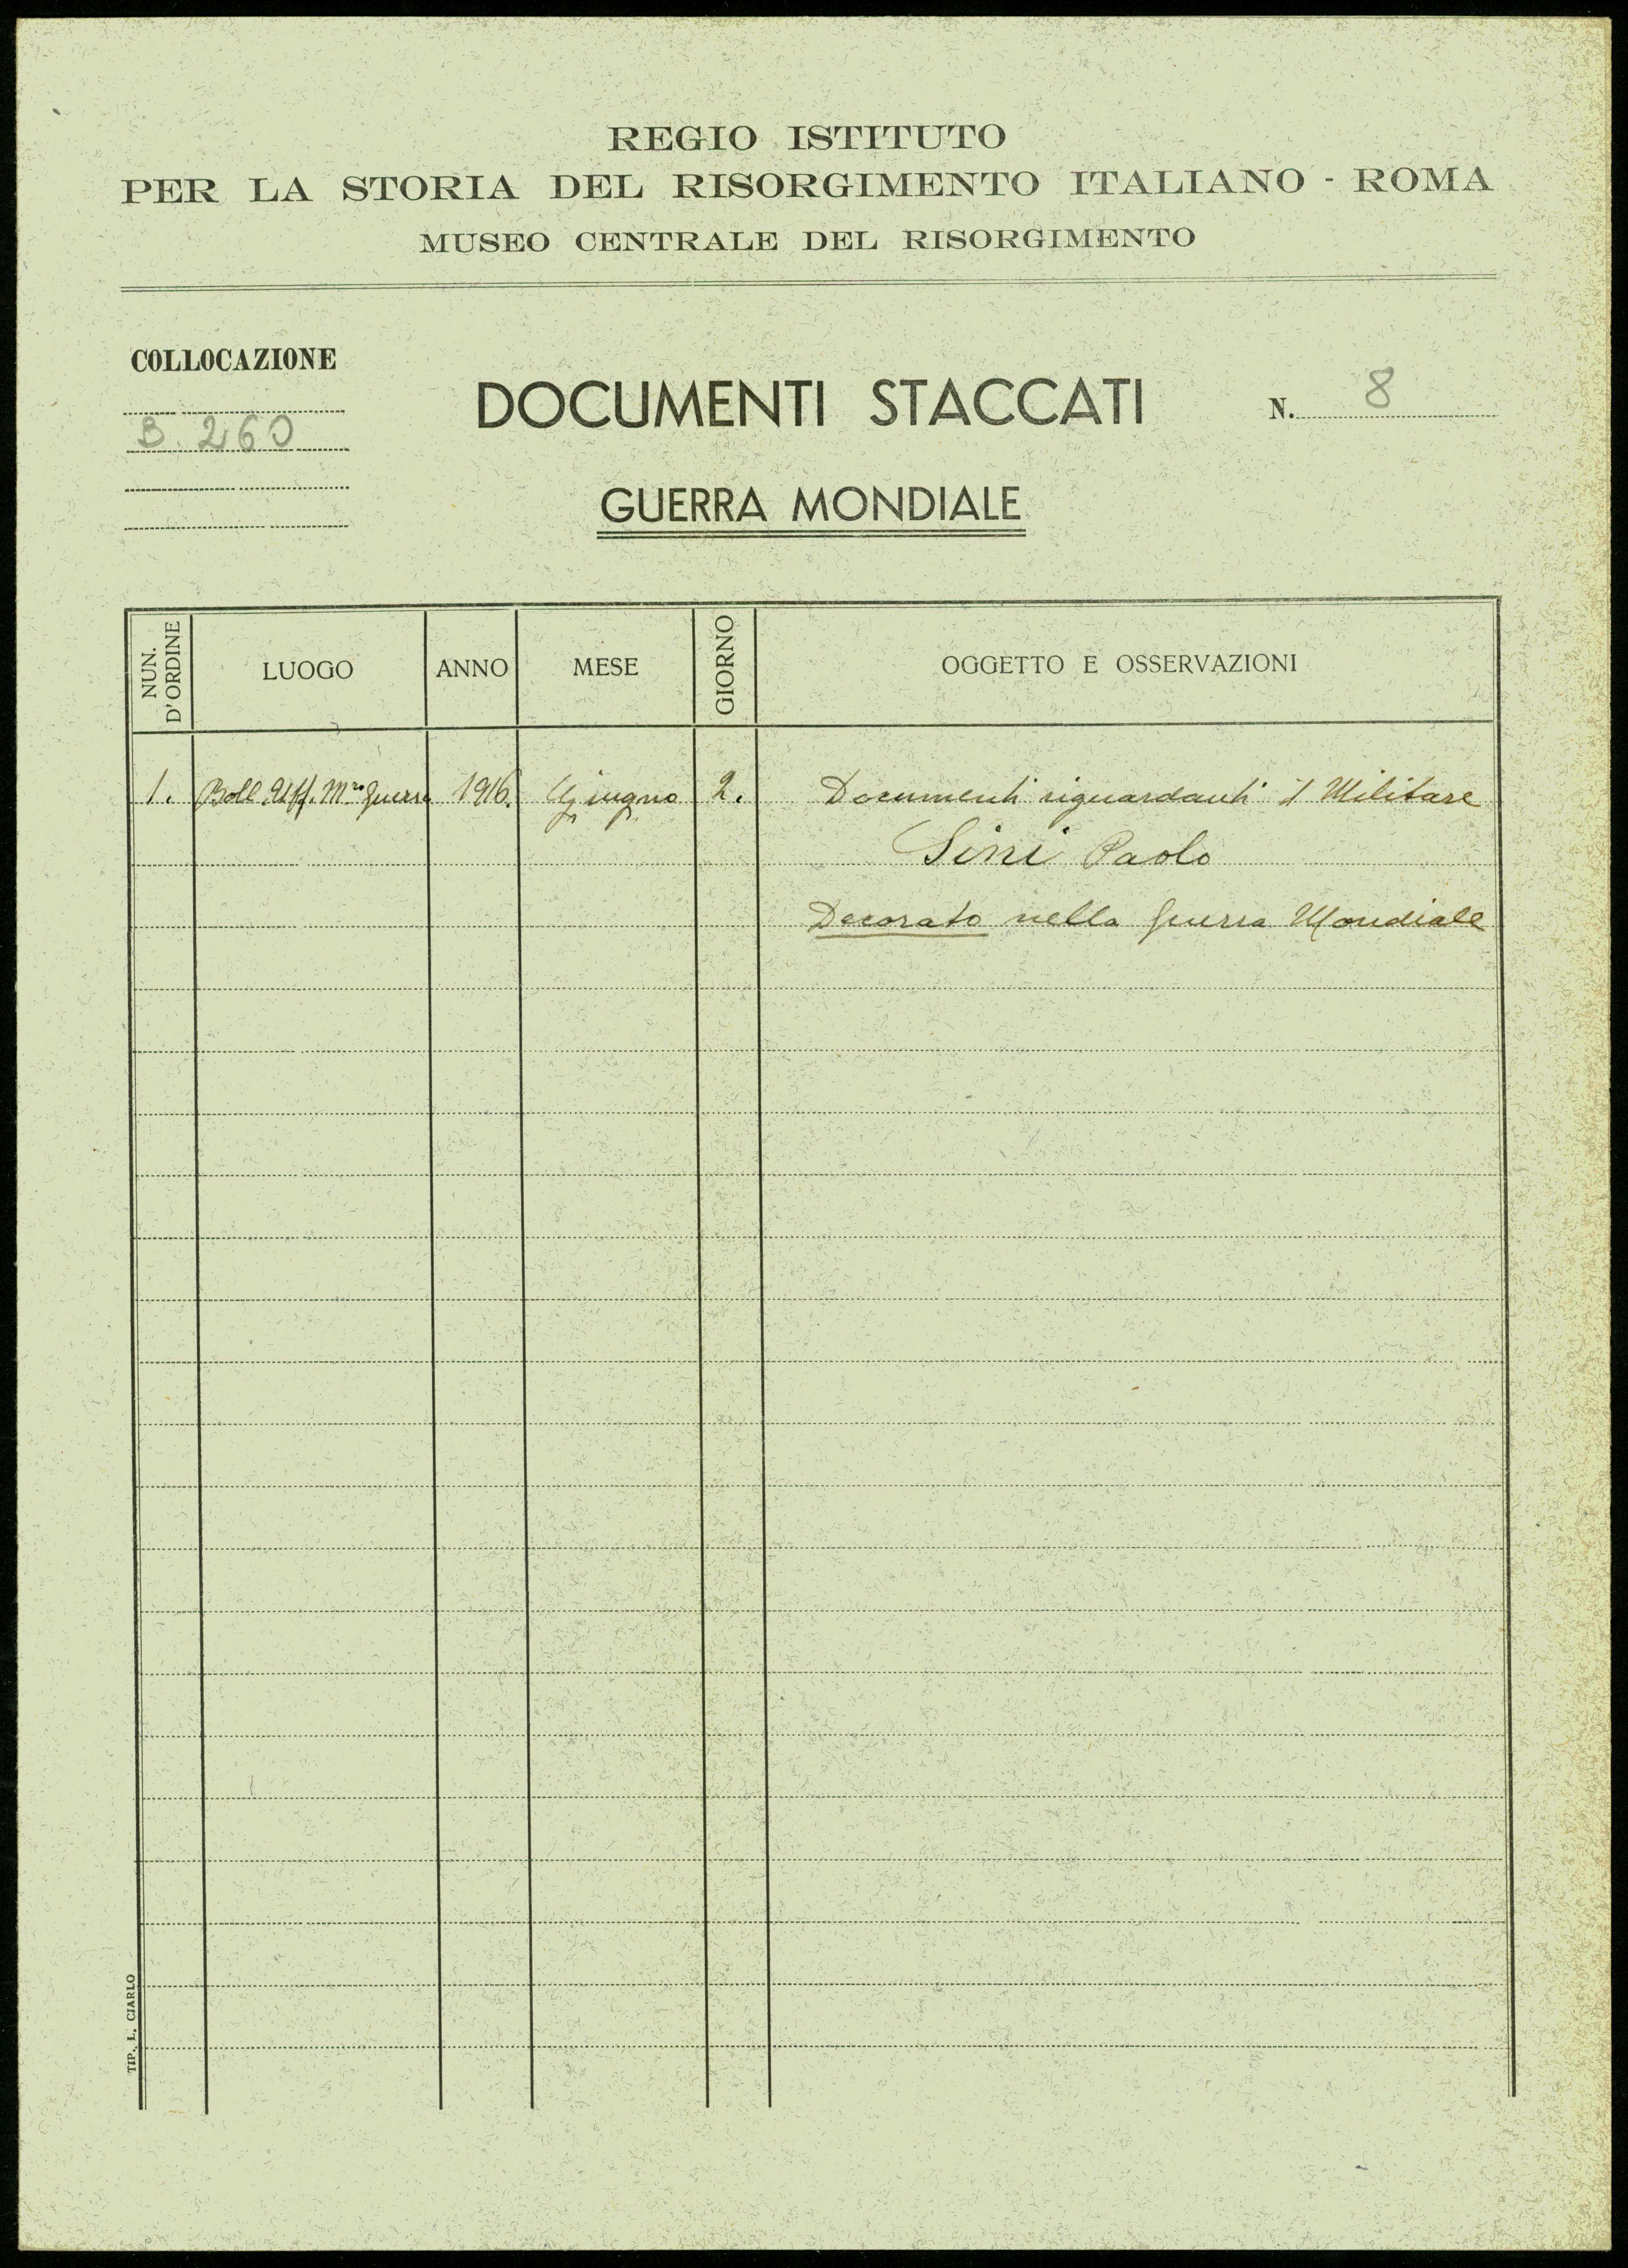 REGIO ISTITUTO
PER LA STORIA DEL RISORGIMENTO ITALIANO - ROMA
MUSEO CENTRALE DEL RISORGIMENTO
COLLOCAZIONE
B. 260
DOCUMENTI STACCATI
N. 8
GUERRA MONDIALE
NUN. D'ORDINE LUOGO ANNO MESE GIORNO OGGETTO E OSSERVAZIONI
1. Boll. Uff. Mro guerra 1916. Giugno 2. Documenti riguardanti il Militare
Sini Paolo
Decorato nella guerra Mondiale
TIP. L. CIARLO